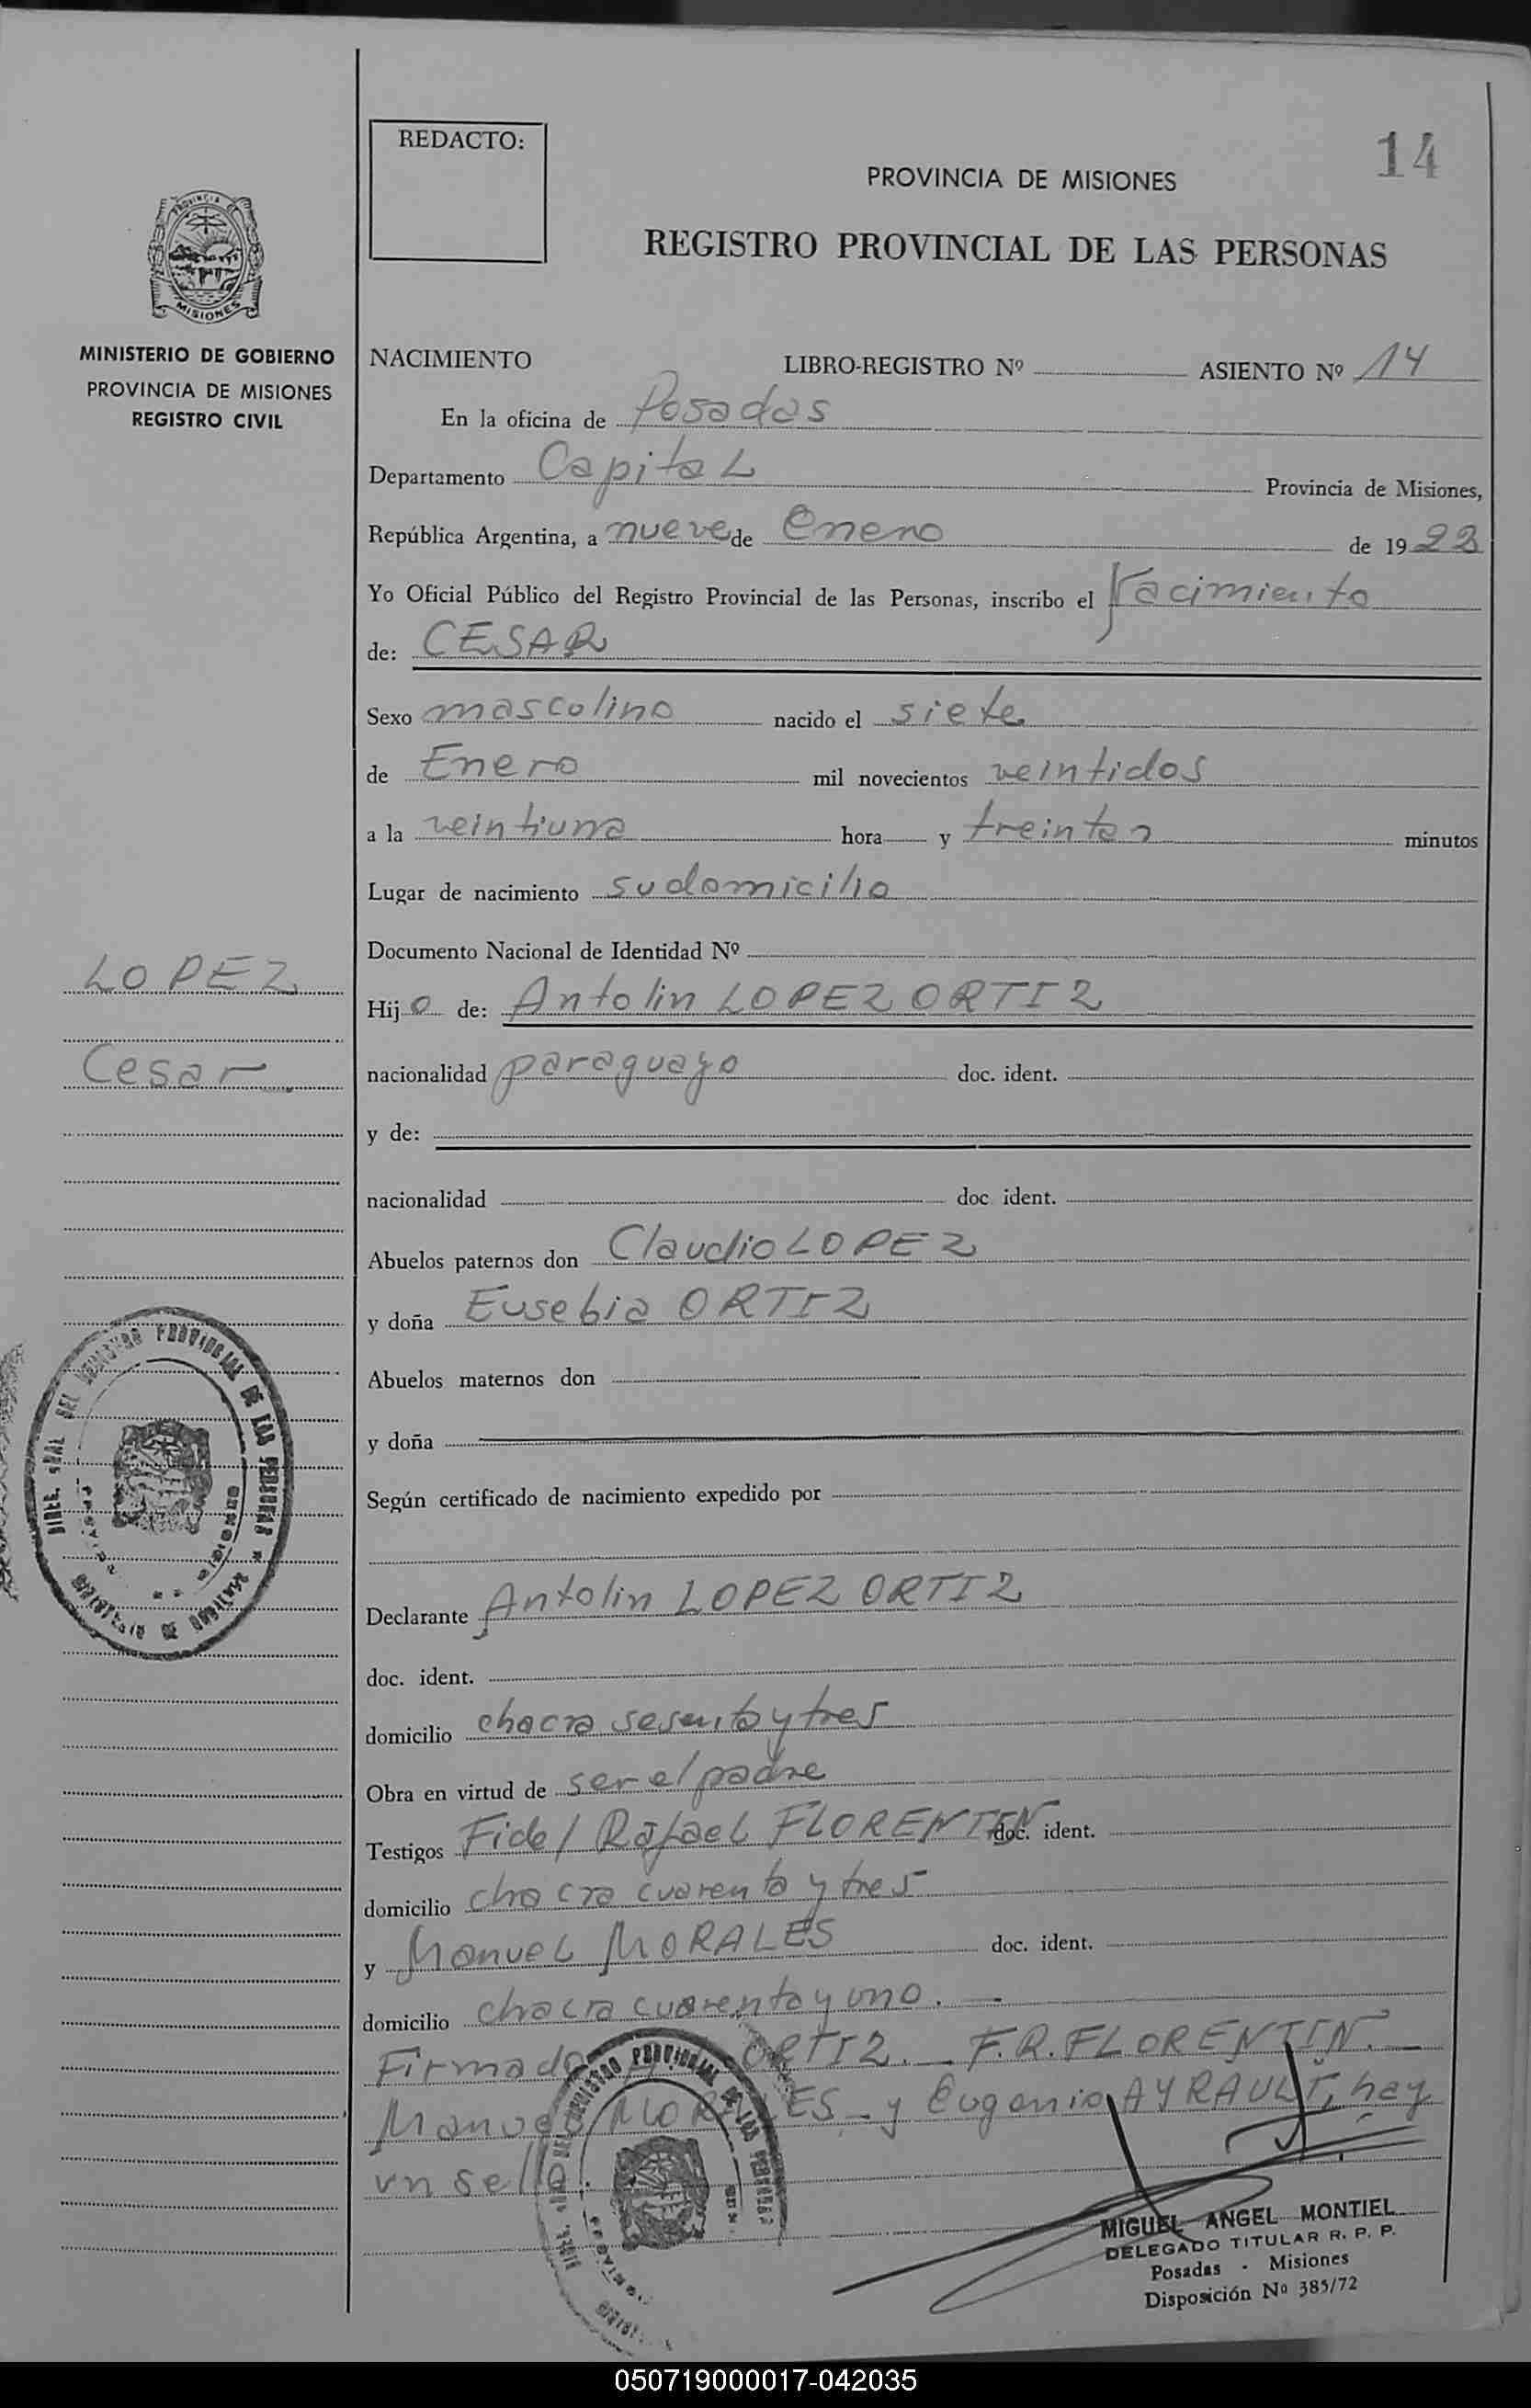 REDACTO:
14
PROVINCIA DE MISIONES
REGISTRO PROVINCIAL DE LAS PERSONAS
PROVINCIA DE
MISIONES
MINISTERIO DE GOBIERNO
PROVINCIA DE MISIONES
REGISTRO CIVIL
NACIMIENTO LIBRO-REGISTRO Nº ASIENTO Nº 14
En la oficina de Posadas
Departamento Capital Provincia de Misiones,
República Argentina, a nueve de Enero de 19 22
Yo Oficial Público del Registro Provincial de las Personas, inscribo el Nacimiento
de: CESAR
Sexo masculino nacido el siete
de Enero mil novecientos veintidos
a la veintiuna hora y treinta minutos
Lugar de nacimiento su domicilio
Documento Nacional de Identidad Nº
LOPEZ
Cesar
Hijo de: Antolin LOPEZ ORTIZ
nacionalidad paraguayo doc. ident.
y de:
nacionalidad doc ident.
Abuelos paternos don Claudio LOPEZ
y doña Eusebia ORTIZ
Abuelos maternos don
y doña
Según certificado de nacimiento expedido por
Declarante Antolin LOPEZ ORTIZ
doc. ident.
domicilio chacra sesenta y tres
Obra en virtud de ser el padre
Testigos Fidel Rafael FLORENTIN doc. ident.
domicilio chacra cuarenta y tres
y Manuel MORALES doc. ident.
domicilio chacra cuarenta y uno.
Firmado ORTIZ. F.R. FLORENTIN.
Manuel MORALES y Eugenio AYRAULT, hay
un sello.
DEL REGISTRO PROVINCIAL DE LAS PERSONAS
MIGUEL ANGEL MONTIEL
DELEGADO TITULAR R. P. P.
Posadas - Misiones
Disposición Nº 385/72
050719000017-042035